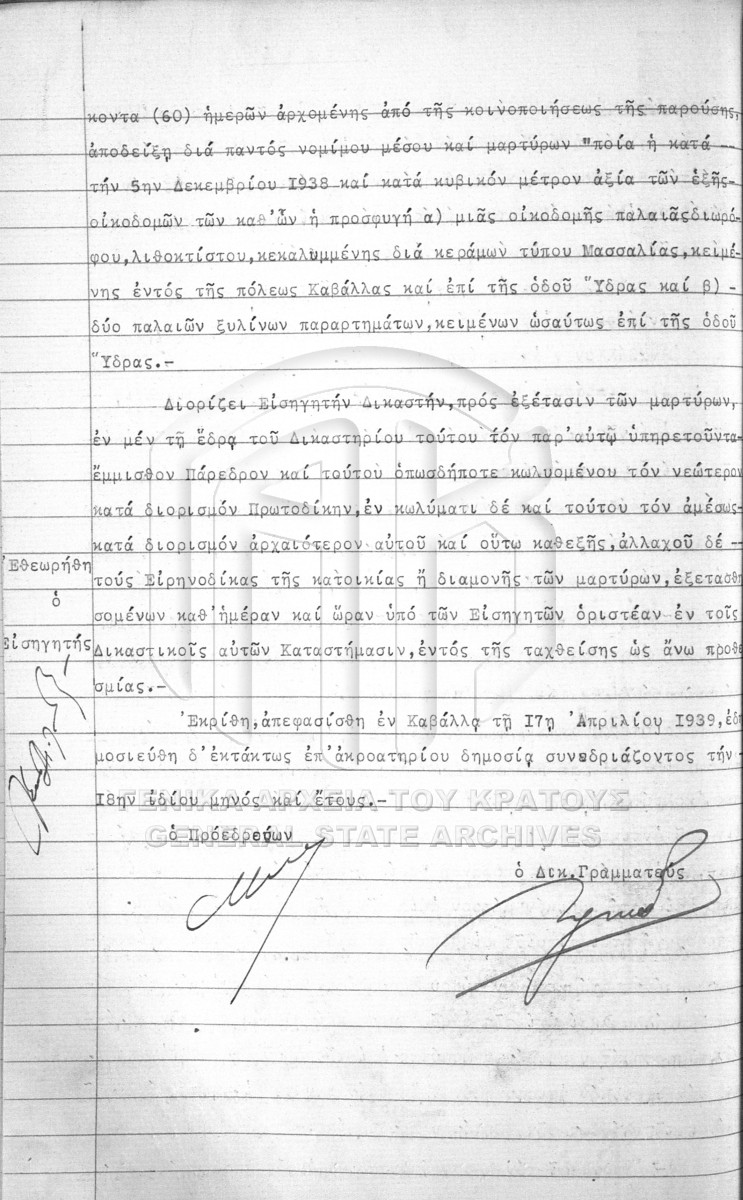 κοντα (60) ἡμερῶν ἀρχομένης ἀπό τῆς κοινοποιήσεως τῆς παρούσης,
ἀποδείξῃ διά παντός νομίμου μέσου καί μαρτύρων "ποία ἡ κατά -
τήν 5ην Δεκεμβρίου 1938 καί κατά κυβικόν μέτρον ἀξία τῶν ἑξῆς-
οἰκοδομῶν τῶν καθ'ὧν ἡ προσφυγή α) μιᾶς οἰκοδομῆς παλαιᾶςδιωρό-
φου,λιθοκτίστου,κεκαλυμμένης διά κεράμων τύπου Μασσαλίας,κειμέ-
νης ἐντός τῆς πόλεως Καβάλλας καί ἐπί τῆς ὁδοῦ Ὕδρας καί β) -
δύο παλαιῶν ξυλίνων παραρτημάτων,κειμένων ὡσαύτως ἐπί τῆς ὁδοῦ
Ὕδρας.-
Διορίζει Εἰσηγητήν Δικαστήν,πρός ἐξέτασιν τῶν μαρτύρων,
ἐν μέν τῇ ἕδρᾳ τοῦ Δικαστηρίου τούτου τόν παρ'αὐτῷ ὑπηρετοῦντα-
ἔμμισθον Πάρεδρον καί τούτου ὁπωσδήποτε κωλυομένου τόν νεώτερον
κατά διορισμόν Πρωτοδίκην,ἐν κωλύματι δέ καί τούτου τόν ἀμέσως-
κατά διορισμόν ἀρχαιότερον αὐτοῦ καί οὕτω καθεξῆς,ἀλλαχοῦ δέ -
τούς Εἰρηνοδίκας τῆς κατοικίας ἤ διαμονῆς τῶν μαρτύρων,ἐξετασθη
σομένων καθ'ἡμέραν καί ὥραν ὑπό τῶν Εἰσηγητῶν ὁριστέαν ἐν τοῖς
Δικαστικοῖς αὐτῶν Καταστήμασιν,ἐντός τῆς ταχθείσης ὡς ἄνω προθε
σμίας.-
Ἐθεωρήθη
ὁ
Εἰσηγητής
Ἐκρίθη,ἀπεφασίσθη ἐν Καβάλλᾳ τῇ 17ῃ Ἀπριλίου 1939,ἐδη
μοσιεύθη δ'ἐκτάκτως ἐπ'ἀκροατηρίου δημοσίᾳ συνεδριάζοντος τήν -
18ην ἰδίου μηνός καί ἔτους.-
ΓΕΝΙΚΑ ΑΡΧΕΙΑ ΤΟΥ ΚΡΑΤΟΥΣ
GENERAL STATE ARCHIVES
ὁ Προεδρεύων
ὁ Δικ.Γραμματεύς